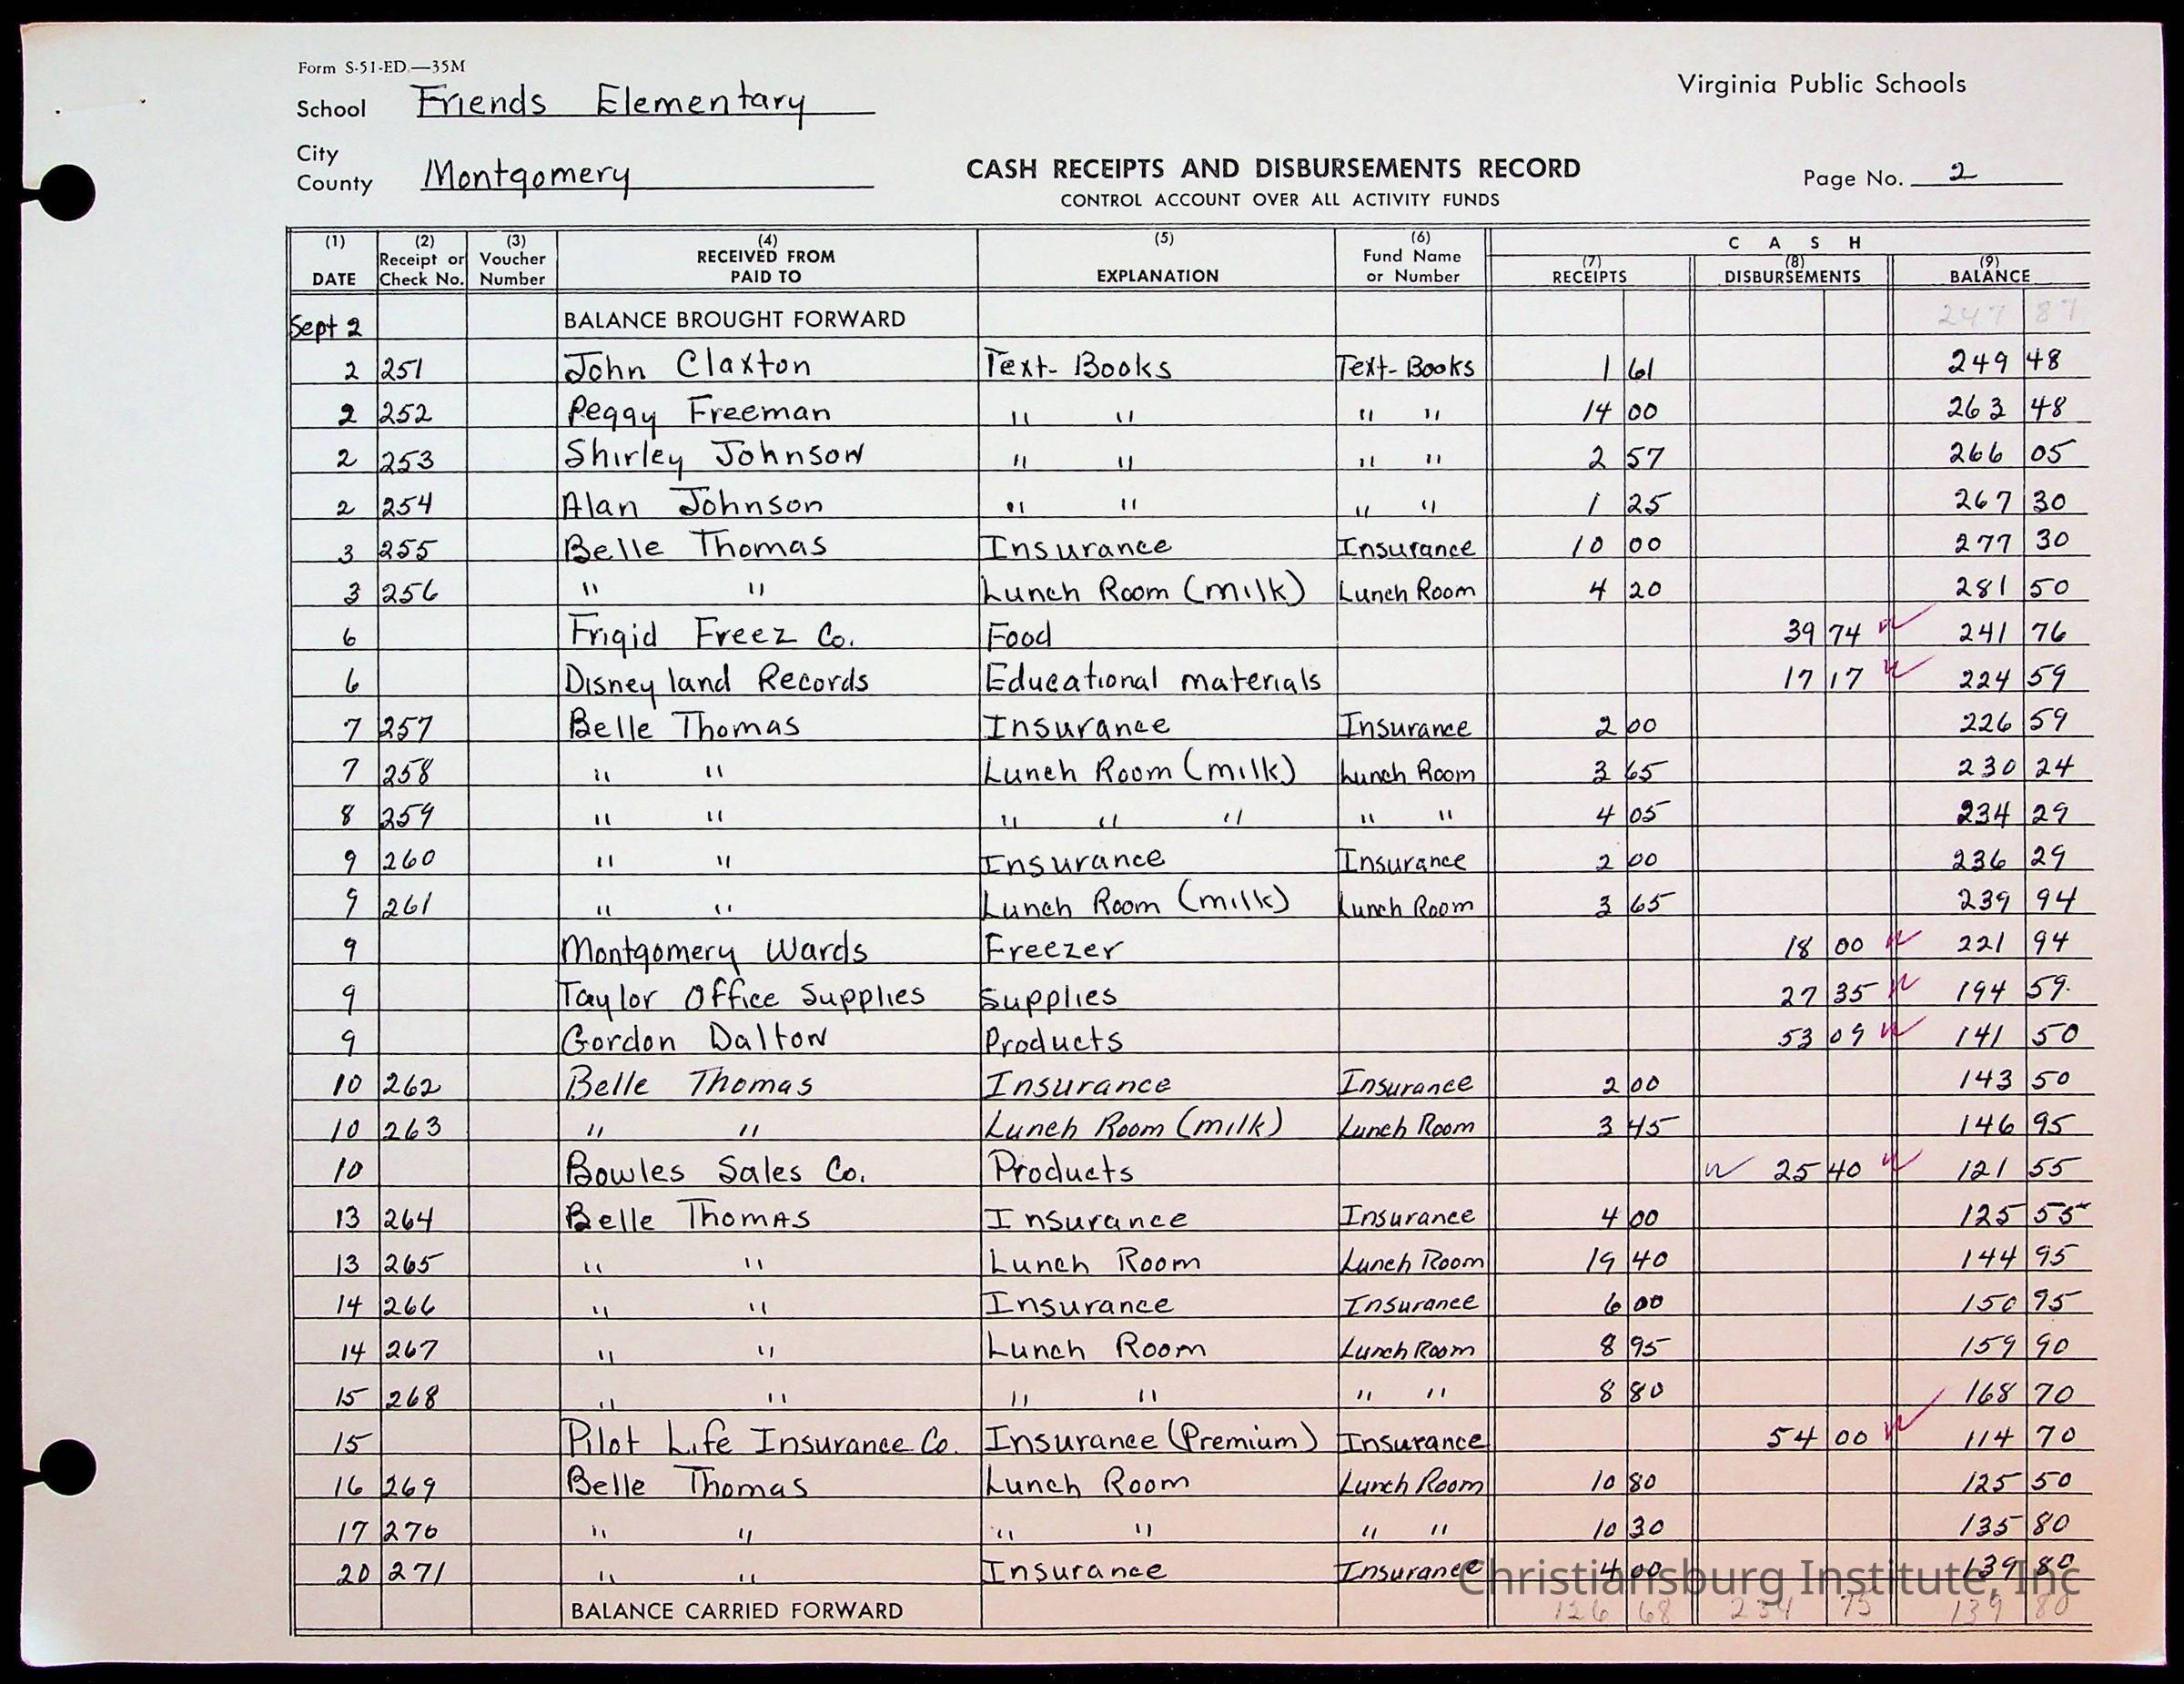 Form S-51-ED.—35M
School Friends Elementary
Virginia Public Schools
City
County Montgomery
CASH RECEIPTS AND DISBURSEMENTS RECORD
Page No. 2
CONTROL ACCOUNT OVER ALL ACTIVITY FUNDS
(1) DATE (2) Receipt or Check No. (3) Voucher Number (4) RECEIVED FROM PAID TO (5) EXPLANATION (6) Fund Name or Number CASH (7) RECEIPTS (8) DISBURSEMENTS (9) BALANCE
Sept 2 BALANCE BROUGHT FORWARD 247 87
2 251 John Claxton Text-Books Text-Books 1 61 249 48
2 252 Peggy Freeman " " " " 14 00 263 48
2 253 Shirley Johnson " " " " 2 57 266 05
2 254 Alan Johnson " " " " 1 25 267 30
3 255 Belle Thomas Insurance Insurance 10 00 277 30
3 256 " " Lunch Room (milk) Lunch Room 4 20 281 50
6 Frigid Freez Co. Food 39 74 241 76
6 Disneyland Records Educational materials 17 17 224 59
7 257 Belle Thomas Insurance Insurance 2 00 226 59
7 258 " " Lunch Room (milk) Lunch Room 3 65 230 24
8 259 " " " " " " " 4 05 234 29
9 260 " " Insurance Insurance 2 00 236 29
9 261 " " Lunch Room (milk) Lunch Room 3 65 239 94
9 Montgomery Wards Freezer 18 00 221 94
9 Taylor Office Supplies Supplies 27 35 194 59.
9 Gordon Dalton Products 53 09 141 50
10 262 Belle Thomas Insurance Insurance 2 00 143 50
10 263 " " Lunch Room (milk) Lunch Room 3 45 146 95
10 Bowles Sales Co. Products 25 40 121 55
13 264 Belle Thomas Insurance Insurance 4 00 125 55
13 265 " " Lunch Room Lunch Room 19 40 144 95
14 266 " " Insurance Insurance 6 00 150 95
14 267 " " Lunch Room Lunch Room 8 95 159 90
15 268 " " " " " " 8 80 168 70
15 Pilot Life Insurance Co. Insurance (Premium) Insurance 54 00 114 70
16 269 Belle Thomas Lunch Room Lunch Room 10 80 125 50
17 270 " " " " " " 10 30 135 80
20 271 " " Insurance Insurance 4 00 139 80
Christiansburg Institute, Inc
BALANCE CARRIED FORWARD 126 68 234 75 139 80